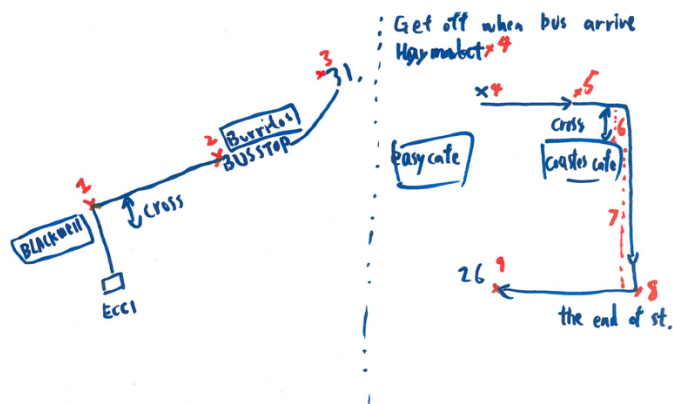 3
31.
2
Burritos
BUSSTOP
1
cross
BLACKWell
ECCI
Get off when bus arrive
Haymarket x 4
x4
x5
cross
6
easycafe
coastes cafe
7
26
9
8
the end of st.